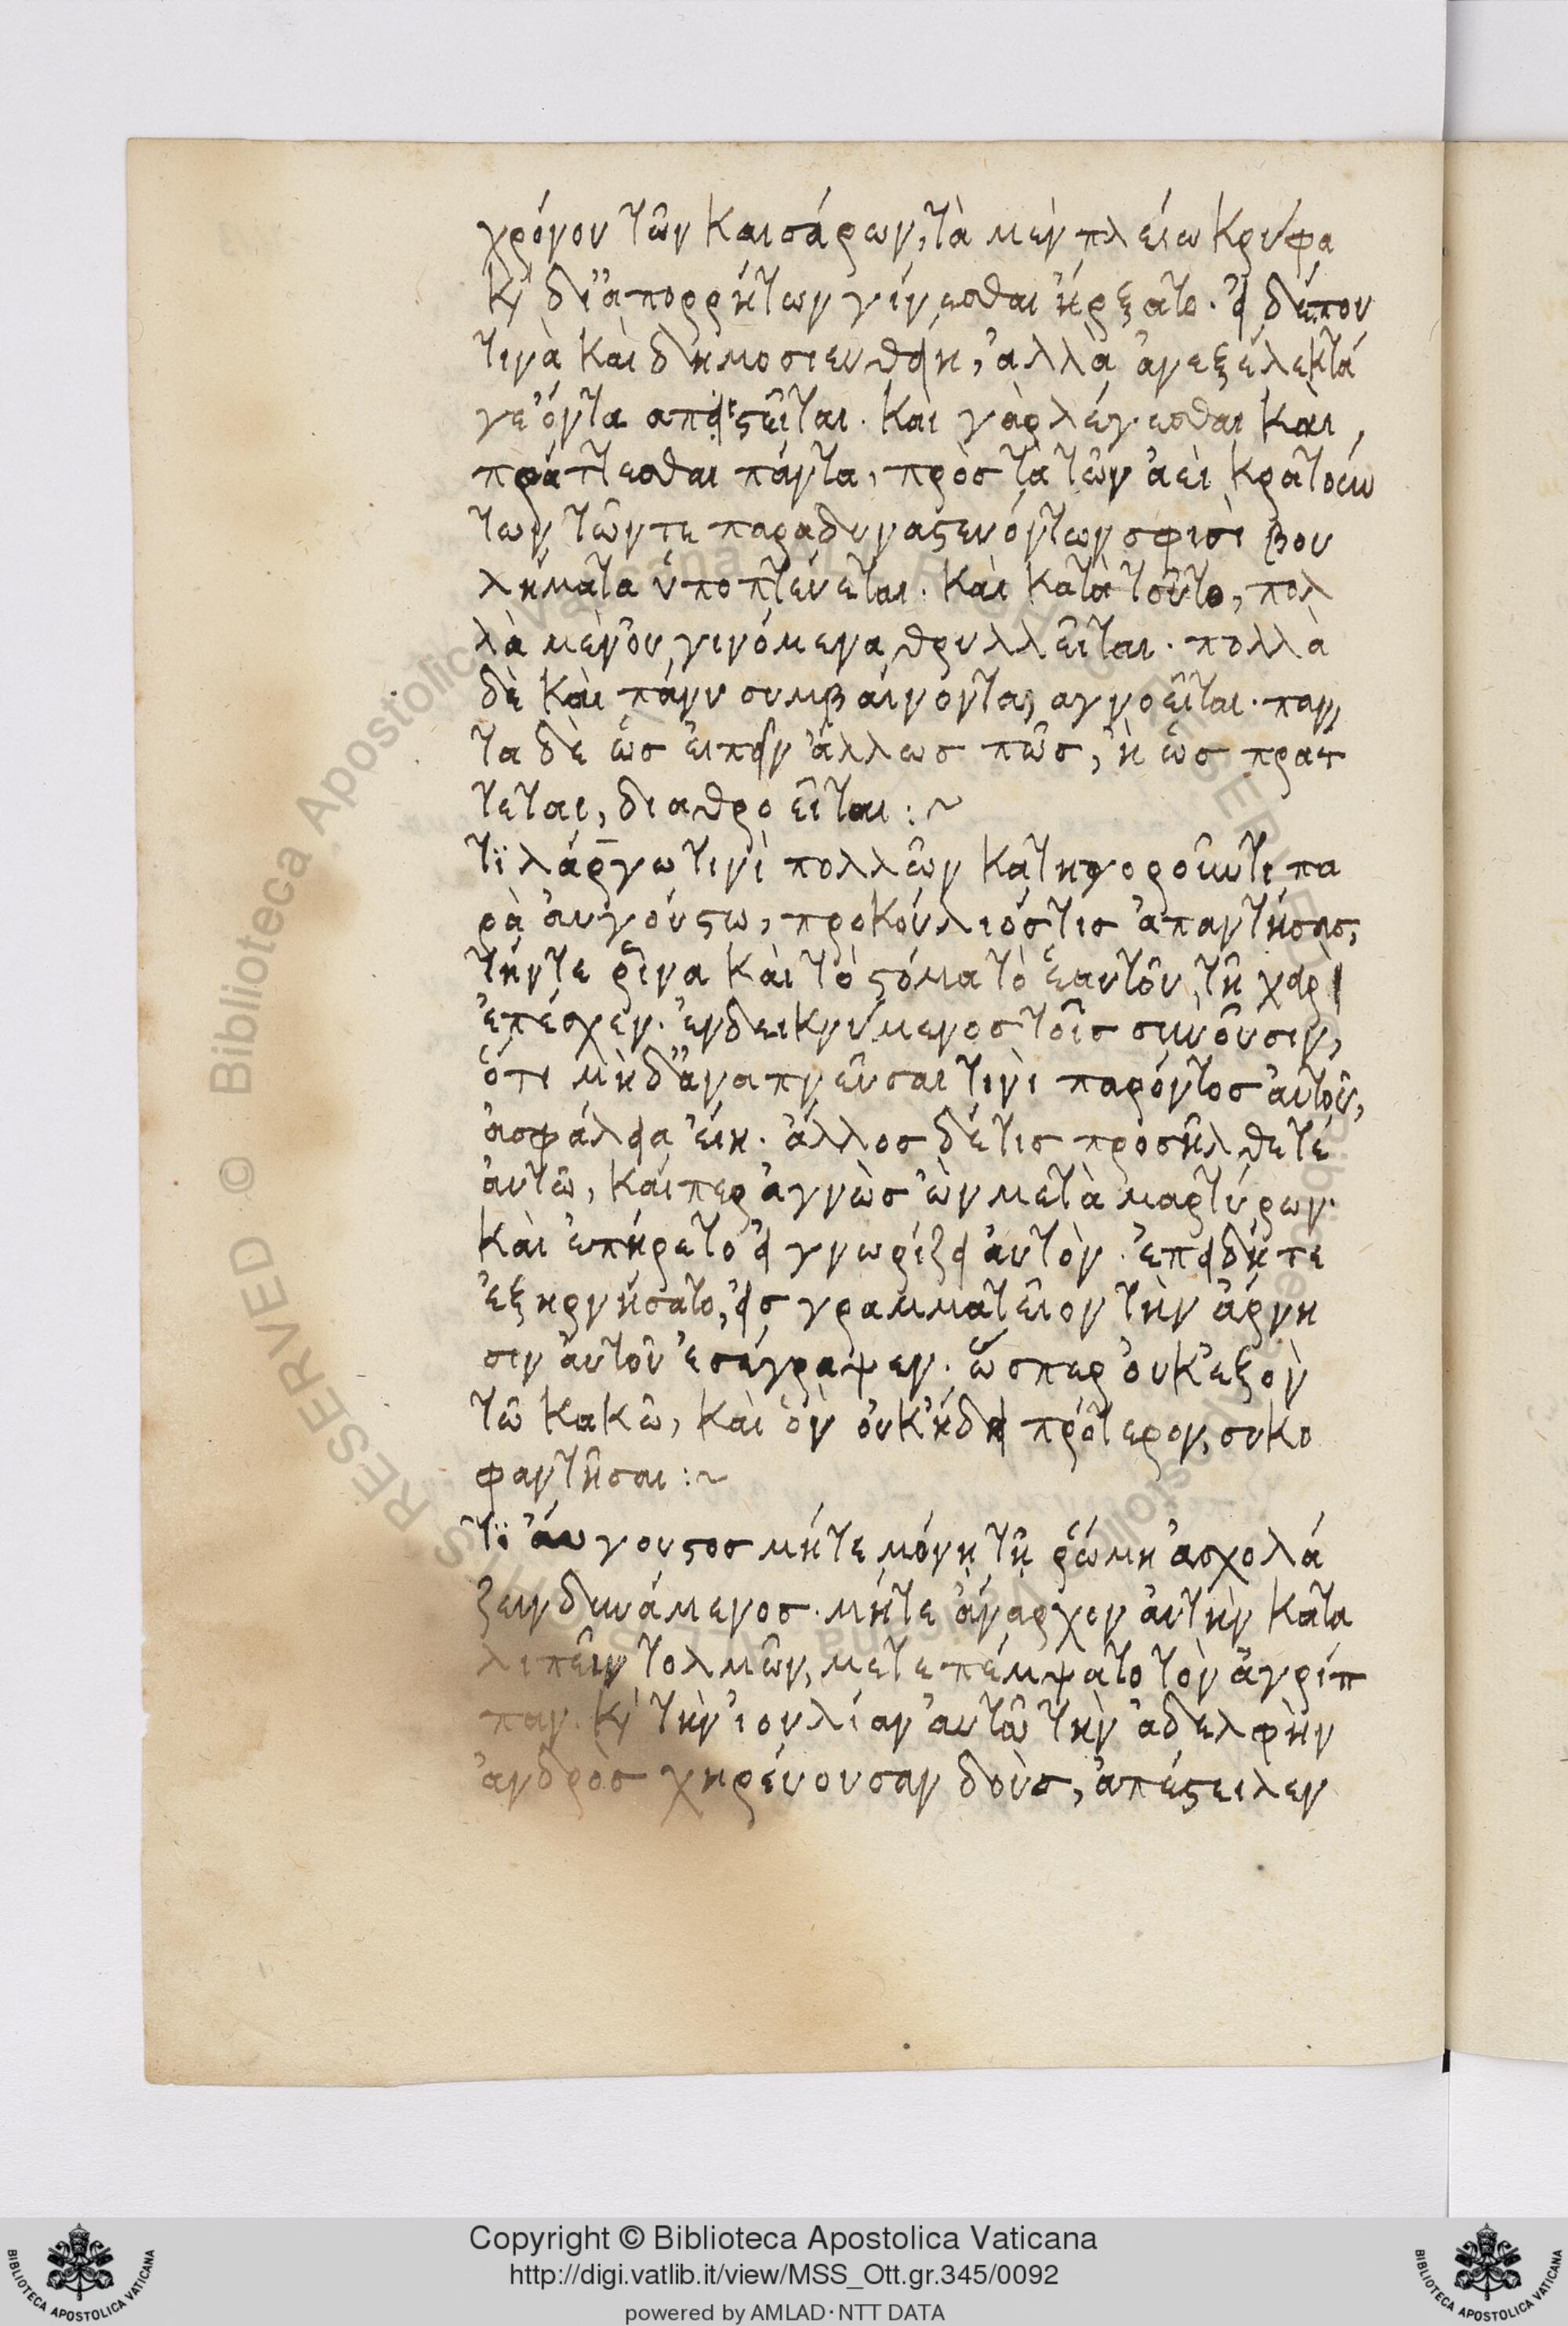 χρόνον τῶν καισάρων, τὰ μὲν πλείω κρύφα
κ̀ δι' ἀπορρήτων γίνεσθαι ἤρξατο. εἰ δέπου
τινὰ καὶ δημοσιευθείη, ἀλλὰ ἀνεξέλεκτά
γε ὄντα απειστεῖται. καὶ γὰρ λέγεσθαι καὶ
πράττεσθαι πάντα, πρὸς τὰ τῶν ἀεὶ κρατούν
των τῶντε παραδυναστευόντων σφισὶ βου
λήματα ὑποπτεύεται. καὶ κατὰ τοῦτο, πολ
λὰ μὲν οὐ γινόμενα θρυλλεῖται. πολλὰ
δὲ καὶ πάνυ συμβαίνοντα, αγνοεῖται. παν
τα δὲ ὡς ειπεῖν ἄλλως πῶς, ἢ ὡς πράτ
τεται, διαθροεῖται :~
Ὅτι λάργω τινὶ πολλῶν κατηγοροῦντι πα
ρὰ αυγούστω, προκούλιός τις ἀπαντήσας,
τήντε ῥῖνα καὶ τὸ στόμα τὸ ἑαυτοῦ, τῆ χειρὶ
ἐπέσχεν. ἐνδεικνύμενος τοῖς συνοῦσιν,
ὅτι μὴδ' ἀναπνεῦσαι τινὶ παρόντος αὐτοῦ,
ἀσφάλεια εἴη. ἄλλος δέτις προσῆλθετέ
αὐτῶ, καίπερ ἀγνὼς ὢν μετὰ μαρτύρων.
καὶ ἐπήρετο εἰ γνωρίζει αὐτὸν. ἐπειδήτε
ἐξηρνήσατο, εἰς γραμματεῖον τὴν ἄρνη
σιν αὐτοῦ ἐσέγραψεν. ὥσπερ οὐκ ἐξὸν
τῶ κακῶ, καὶ ὃν οὐκ ἤδει πρότερον, συκο
φαντῆσαι :~
Ὅτι ἄυγουστος μήτε μόνη τῆ ῥώμη ἀσχολά
ζειν δυνάμενος. μήτε ἄναρχον αὐτὴν κατα
λιπεῖν τολμῶν, μετεπέμψατο τὸν ἀγρίπ
παν. κ̀ τὴν ἰουλίαν αὐτῶ τὴν ἀδελφὴν
ἀνδρὸς χηρεύουσαν δοὺς, ἀπέστειλεν
Copyright © Biblioteca Apostolica Vaticana
http://digi.vatlib.it/view/MSS_Ott.gr.345/0092
powered by AMLAD·NTT DATA